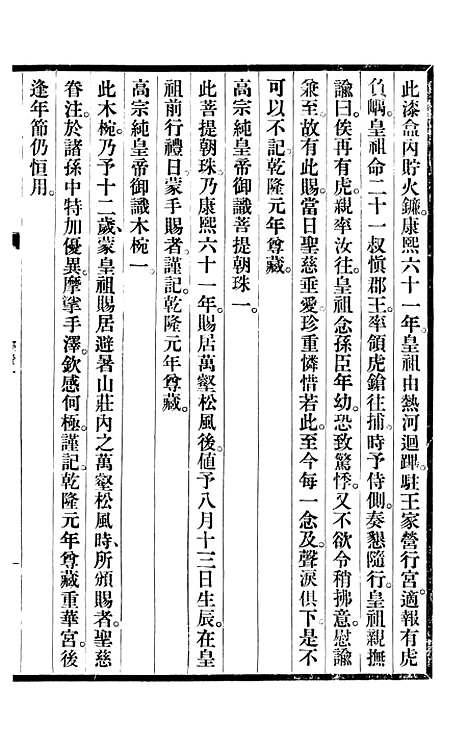 此漆盒內貯火鐮。康熙六十一年皇祖由熱河迴蹕。駐王家營行宮。適報有虎
負嵎。皇祖命二十一叔愼郡王。率領虎鎗往捕。時予侍側。奏懇隨行。皇祖親撫
諭曰。俟再有虎。親率汝往。皇祖念孫臣年幼。恐致驚悸。又不欲令稍拂意。慰諭
兼至。故有此賜。當日聖慈垂愛。珍重憐惜若此。至今每一念及。聲淚俱下。是不
可以不記。乾隆元年尊藏。
高宗純皇帝御識菩提朝珠一。
此菩提朝珠。乃康熙六十一年。賜居萬壑松風後。値予八月十三日生辰。在皇
祖前行禮日。蒙手賜者。謹記。乾隆元年尊藏。
高宗純皇帝御識木椀一
此木椀。乃予十二歲、蒙皇祖賜居避暑山莊內之萬壑松風時、所頒賜者。聖慈
眷注。於諸孫中特加優異。摩挲手澤。欽感何極。謹記。乾隆元年尊藏重華宮。後
逢年節仍恒用。